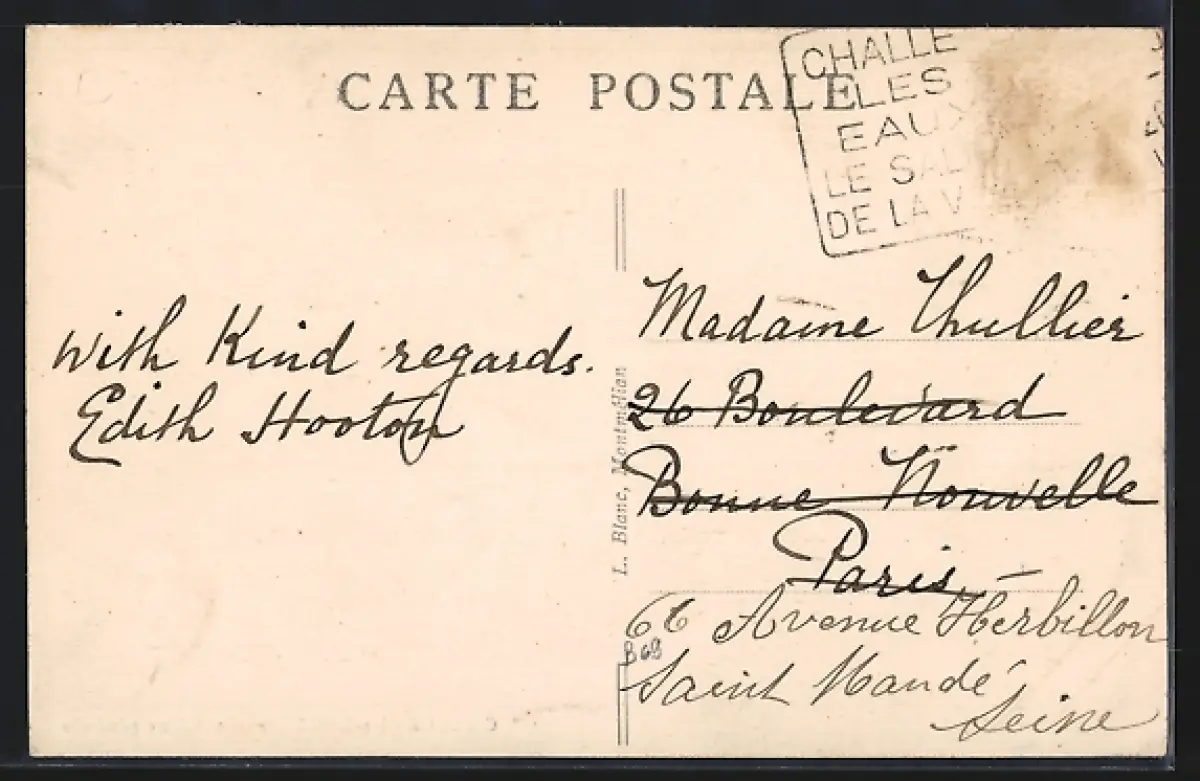 CARTE POSTALE
CHALLE
LES
EAUX
LE SAL
DE LA V
with Kind regards.
Edith Hooton
L. Blanc, Montmélian
Madame Thullier
26 Boulevard
Bonne Nouvelle
Paris
66 Avenue Herbillon
B68
Saint Mandé
Seine